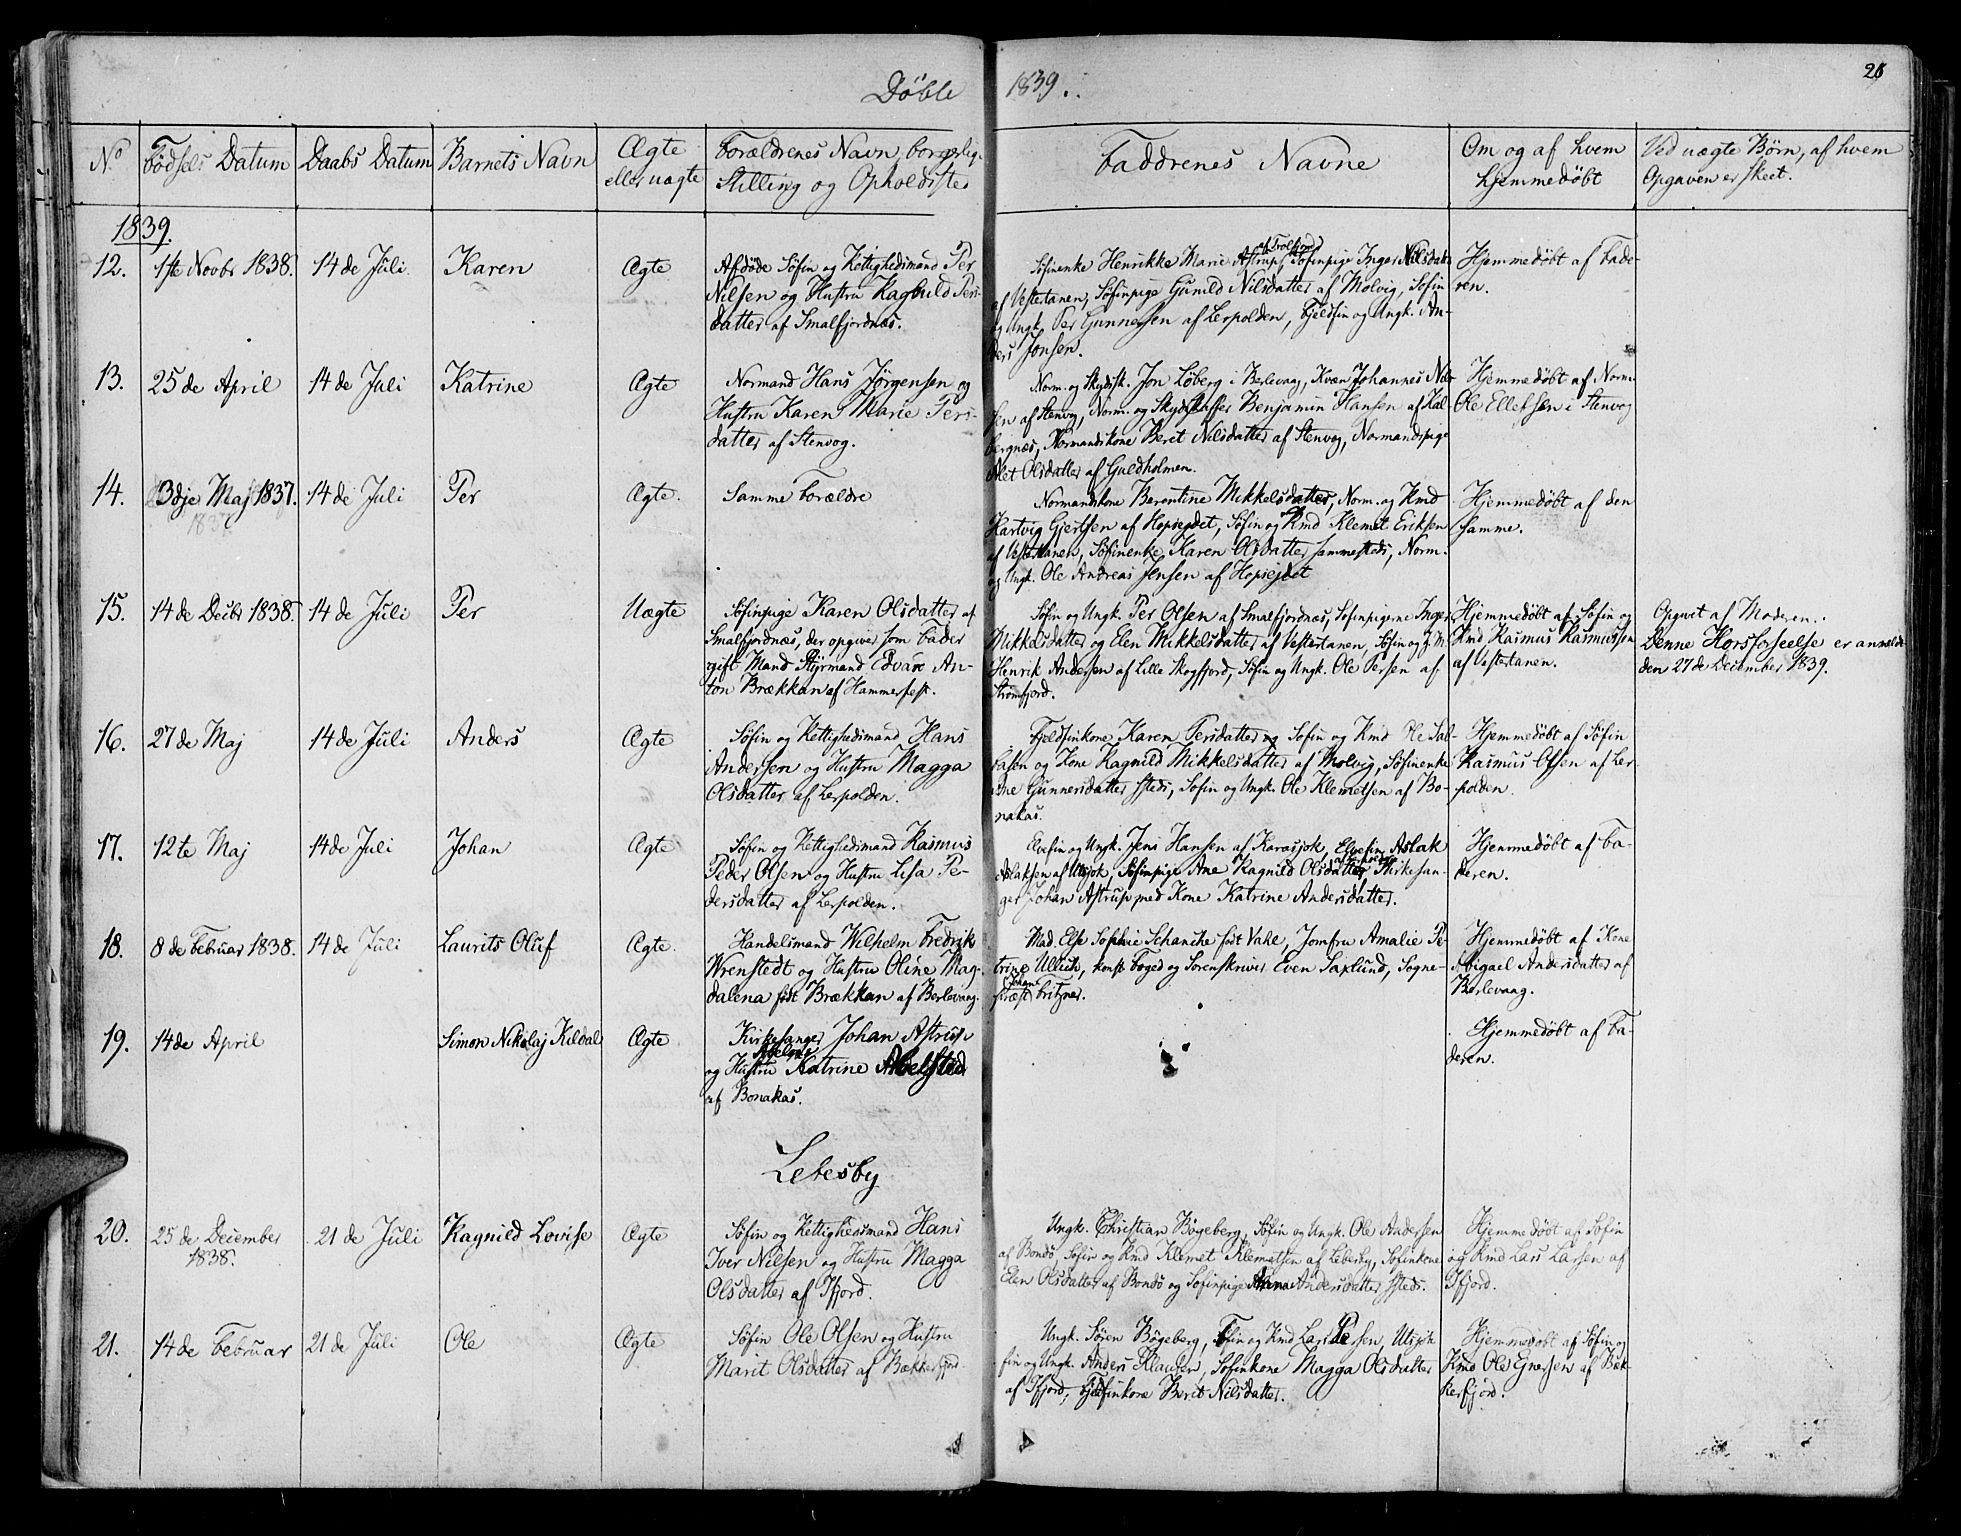 Döbte 1839.
28
No
Födsels Datum
Daabs Datum
Barnets Navn
Ægte
eller uægte
Forældrenes Navn, borgerlig
Stilling og Opholdsted
Faddrenes Navne
Om og af hvem
hjemmedöbt
Ved uægte Børn, af hvem
Opgaven er skeet.
1839.
12.
1ste Novbr 1838.
14de Juli
Karen
Ægte
Afdöde Söfin og Rettighedsmand Per
Nilsen og Hustru Ragnild Pers-
datter af Smalfjordnæs.
af Trollfjord
Söfinenke Henrikke Marie Astrup, Söfinpige Inger Nilsdatter
af Vestertanen, Söfinpige Gunild Nilsdatter af Molvig, Söfin
og Ungk. Per Gunnersen af Lerpolden, Fjeldfin og Ungk. An-
ders Jonsen.
Hjemmedöbt af Fade-
ren.
13.
25de April
14de Juli
Katrine
Ægte
Normand Hans Jörgensen og
Hustru Karen Marie Pers-
datter af Stenvog.
Norm. og Skydsk. Jon Löberg i Berlevaag, Kvæn Johannes Nil-
sen af Stenvog, Norm. og Skydskaffer Benjamin Hansen af Kal-
bergnæs, Normandskone Berit Nilsdatter af Stenvog, Normandspige
Alet Olsdatter af Guldholmen.
Hjemmedöbt af Norm.
Ole Ellefsen i Stenvog
14.
3dje Maj 1837.
14de Juli
Per
Ægte.
Samme Forældre
Normandskone Berentine Mikkelsdatter, Norm. og Rmd
Hartvig Gjertsen af Hopsejdet, Söfin og Rmd Klemet Eriksen
af Vestertanen, Söfinenke Karen Olsdatter sammesteds, Norm.
og Ungk. Ole Andreas Jensen af Hopsejdet
Hjemmedöbt af den
samme.
15.
14de Decbr 1838.
14de Juli
Per
Uægte
Söfinpige Karen Olsdatter af
Smalfjordnæs, der opgiver som Fader
gift Mand Styrmand Edvard An-
ton Brækkan af Hammerfest.
Söfin og Ungk. Per Olsen af Smalfjordnæs, Söfinpigerne Inger
Mikkelsdatter og Elen Mikkelsdatter af Vestertanen, Söfin og G.M.
Henrik Andersen af Lille Skogfjord, Söfin og Ungk. Ole Persen af
Strømfjord.
Hjemmedöbt af Söfin og
Rmd Rasmus Rasmussen
af Vestertanen.
Opgivet af Moderen.
Denne Horsforseelse er anmeldt
den 27de December 1839.
16.
27de Maj
14de Juli
Anders
Ægte
Söfin og Rettighedsmand Hans
Andersen og Hustru Magga
Olsdatter af Lerpolden.
Fjeldfinkone Karen Persdatter og Söfin og Rmd Ole Sal-
tasen og Kone Ragnild Mikkelsdatter af Molvig, Söfinenke
Ane Gunnersdatter ssteds, Söfin og Ungk. Ole Klemetsen af Bo-
nakas.
Hjemmedöbt af Söfin
Rasmus Olsen af Ler-
polden.
17.
12te Maj
14de Juli
Johan
Ægte
Söfin og Rettighedsmand Rasmus
Peder Olsen og Hustru Lisa Pe-
dersdatter af Lerpolden.
Elvefin og Ungk. Jens Hansen af Karasjok, Elvefin Aslak
Aslaksen af Utsjok, Söfinpige Ane Ragnild Olsdatter, Kirkesan-
ger Johan Astrup med Kone Katrine Andersdatter.
Hjemmedöbt af Fa-
deren.
18.
8de Februar 1838.
14de Juli
Laurits Oluf
Ægte.
Handelsmand Wilhelm Fredrik
Wrenstedt og Hustru Oline Mag-
dalena föd Brækkan af Berlevaag.
Mad. Else Sophie Schanche født Vahl, Jomfru Amalie Pe-
trine Ullich, konst. Foged og Sorenskriver Even Saxlund, Sogne-
Johan
præst Fritzner.
Hjemmedöbt af Kone
Abigael Andersdatter af
Berlevaag.
19.
14de April
Simon Nikolaj Kildal
Ægte
Kirkesanger Johan Astrup
og Hustru Katrine Abelsted
af Bonakas.
Hjemmedöbt af Fa-
deren.
Lebesby
20.
25de December
1838.
21de Juli
Ragnild Lovise
Ægte
Söfin og Rettighedsmand Hans
Iver Nilsen og Hustru Magga
Olsdatter af Ifjord.
Ungk. Christian Bögeberg, Söfin og Ungk. Ole Andersen
af Bondö, Söfin og Rmd Klemet Klemetsen af Lebesby, Söfinkone
Elen Olsdatter af Bondö og Söfinpige Anna Andersdatter ssteds.
Hjemmedöbt af Söfin
og Rmd Lars Larsen af
Ifjord.
21.
14de Februar
21de Juli
Ole
Ægte
Söfin Ole Olsen og Hustru
Marit Olsdatter af Bækkerfjord.
Ungk. Sören Bögeberg, Söfin og Rmd Lars Persen, Utsjok-
fin og Ungk. Anders Klausen, Söfinkone Magga Olsdatter
af Ifjord, Fjeldfinkone Berit Nilsdatter.
Hjemmedöbt af Söfin og
Rmd Ole Gnersen af Bæk-
kerfjord.